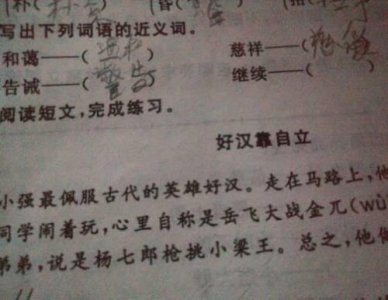 朴
写出下列词语的近义词。
和蔼——( 温和 慈祥——(
告诫——( 警告 ) 继续——(
阅读短文,完成练习。
好汉靠自立
小强最佩服古代的英雄好汉。走在马路上,他
同学闹着玩,心里自称是岳飞大战金兀(wù
弟弟,说是杨七郎枪挑小梁王。总之,他